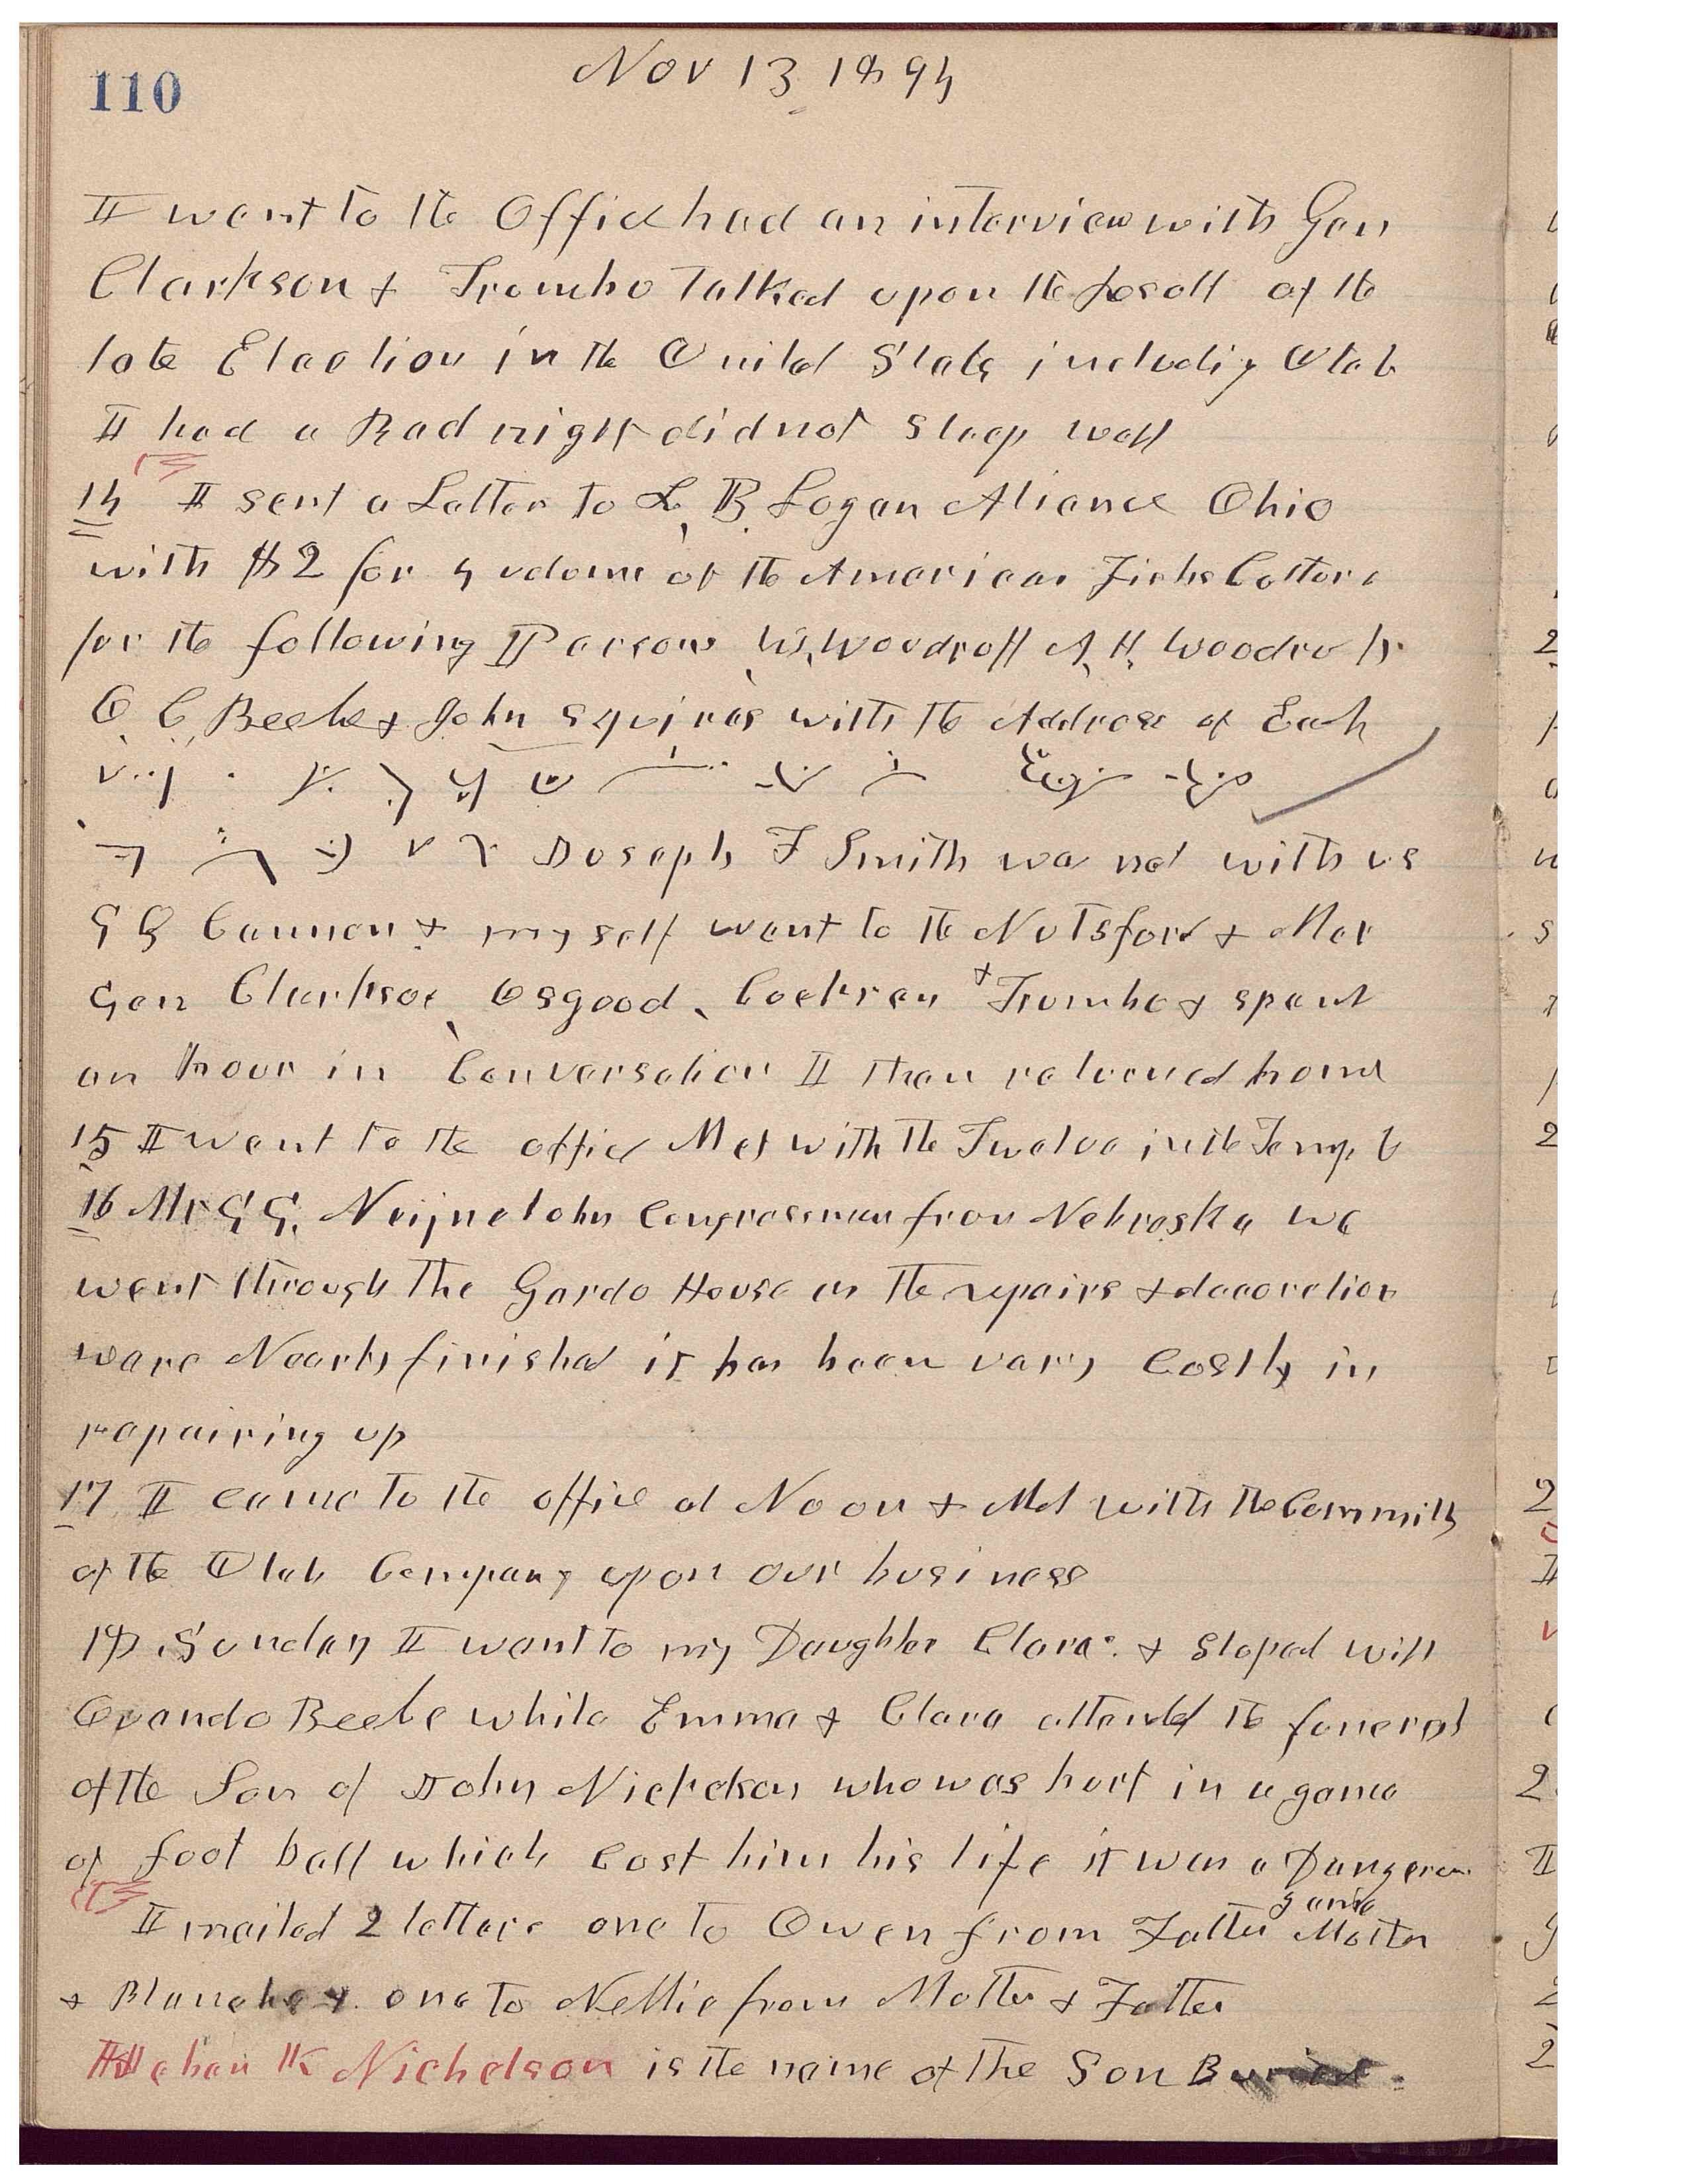 110
Nov 13 1894
I went to the Office had an interview with Gen
Clarkson & Trumbo Talked upon the Result of the
late Election in the United States including Utah
I had a Bad night did not sleep well
14 I sent a Letter to L. B. Logan Aliance Ohio
with $2 for 4 volume of the American Fish Culture
for the following Persons W. Woodruff A. H. Woodruff
O. C. Beebe & John Squires with the Address of Each
Joseph F Smith was not with us
G Q Cannon & myself went to the Nutsford & Met
Gen Clarkson, Osgood, Cockran & Trumbo & spent
an hour in Conversation I then returned home
15 I went to the office Met with the Twelve in the Temple
16 Mr G. G. congressman from Nebraska we
went through The Gardo House as the repairs & decoration
were Nearly finished it has been very Costly in
repairing up
17 I came to the office at Noon & Met with the Committe
of the Utah Company upon our business
18 Sunday I went to my Daughter Clara. & stoped with
Ovando Beebe while Emma & Clara attended the funeral
of the Son of John Nichelson who was hurt in a game
of foot ball which Cost him his life it was a Dangerous
game
I mailed 2 letters one to Owen from Father Mother
& Blanche & one to Nellie from Mother & Father
K Nichelson is the name of the Son Buried.